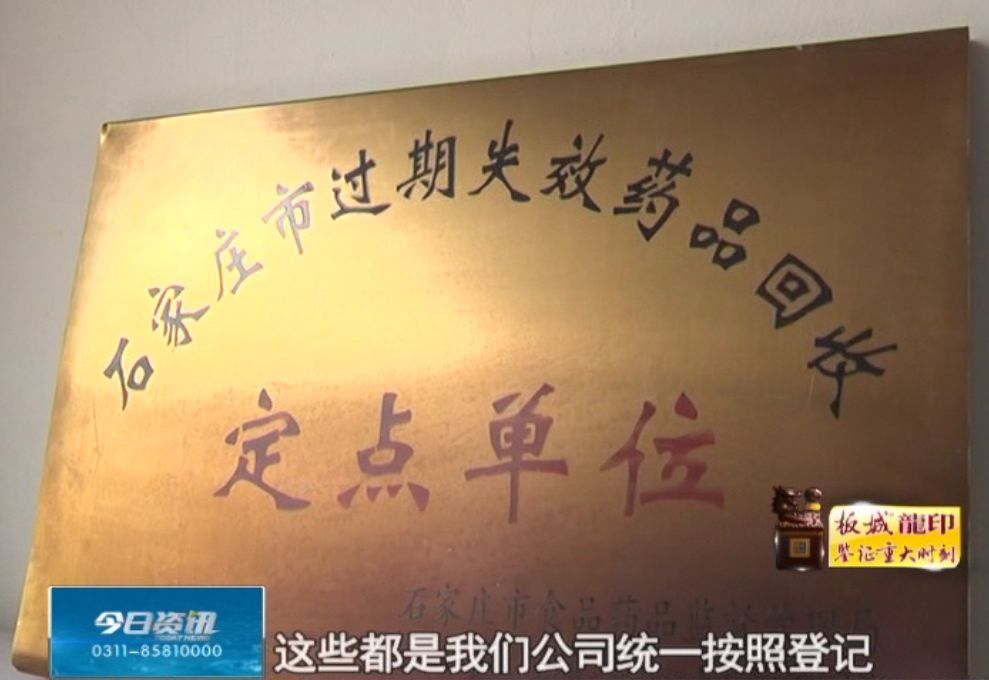 石家庄市过期失效药品回收
定点单位
石家庄市食品药品监督管理局
板城龍印
鉴证重大时刻
今日资讯
TODAY NEWS
0311-85810000
这些都是我们公司统一按照登记